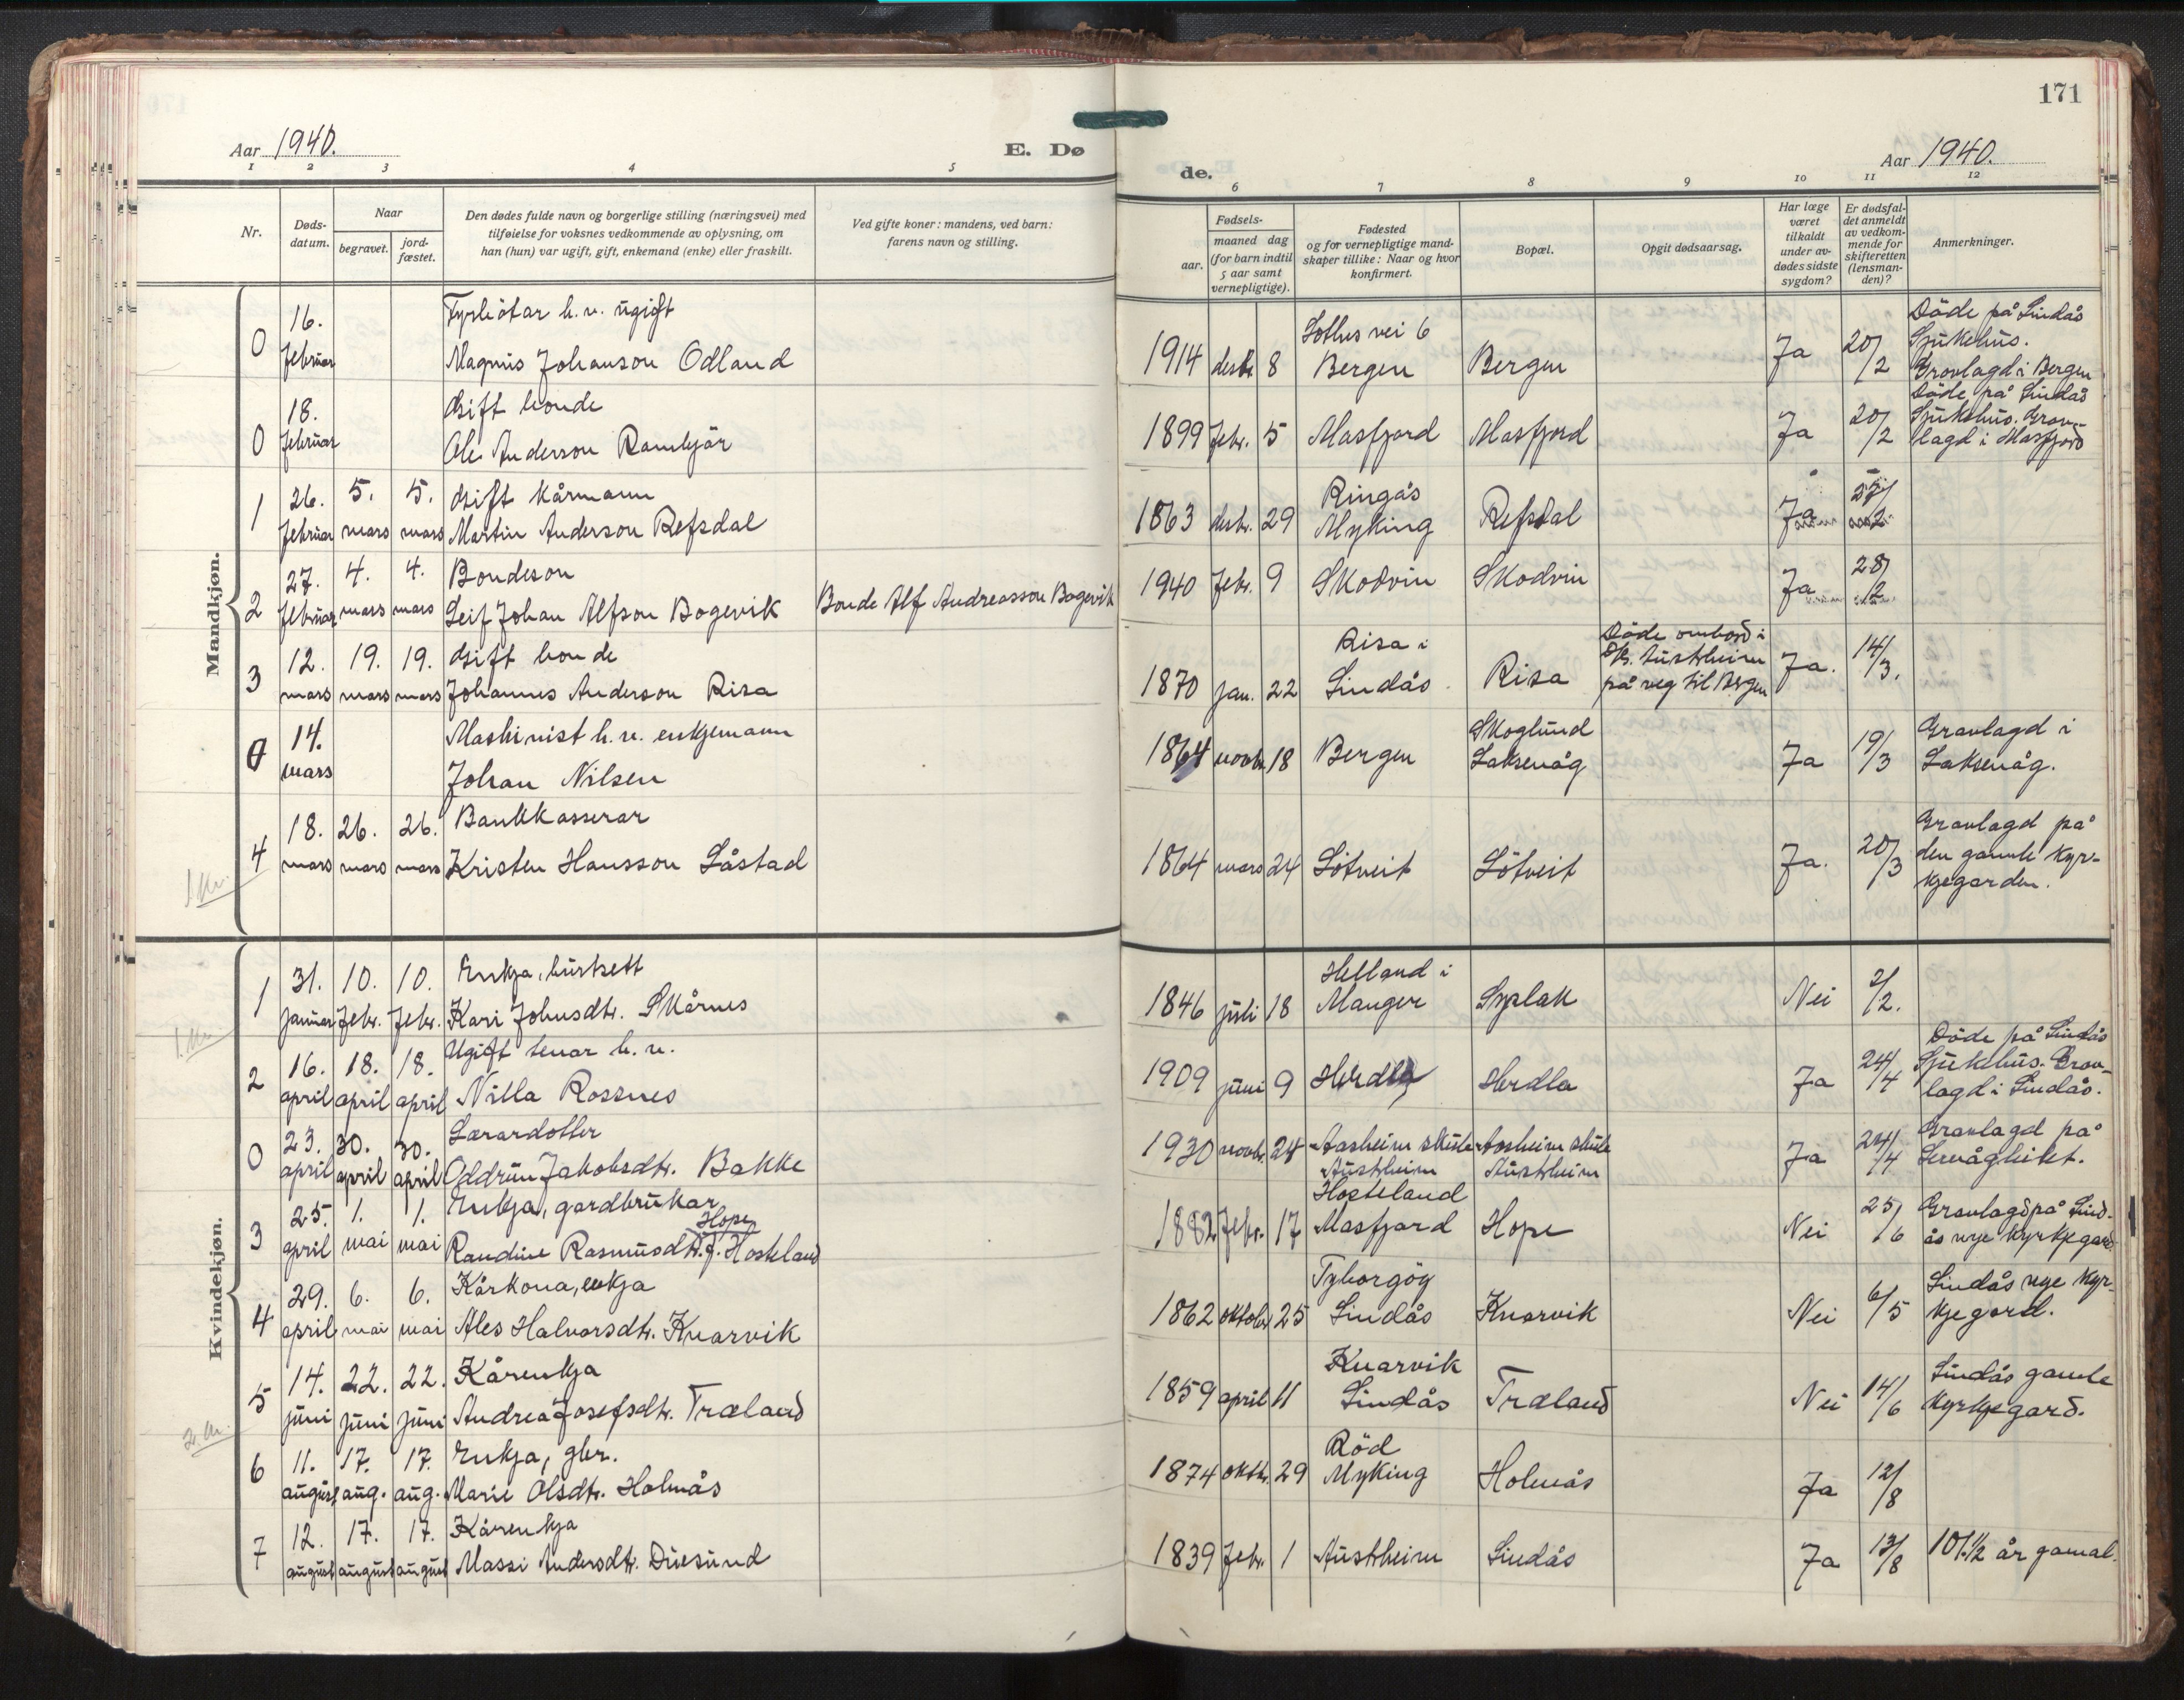 171
Aar 1940.
E. Dø
de.
Aar 1940.
1 2 3 4 5 6 7 8 9 10 11 12
Nr.
Døds-
datum.
Naar
begravet.
jord-
fæstet.
Den dødes fulde navn og borgerlige stilling (næringsvei) med
tilføielse for voksnes vedkommende av oplysning, om
han (hun) var ugift, gift, enkemand (enke) eller fraskilt.
Ved gifte koner: mandens, ved barn:
farens navn og stilling.
Fødsels-
aar.
maaned dag
(for barn indtil
5 aar samt
vernepligtige).
Fødested
og for vernepligtige mand-
skaper tillike: Naar og hvor
konfirmert.
Bopæl.
Opgit dødsaarsag.
Har læge
været
tilkaldt
under av-
dødes sidste
sygdom?
Er dødsfal-
det anmeldt
av vedkom-
mende for
skifteretten
(lensman-
den)?
Anmerkninger.
Mandkjøn.
0 16. februar Fyrbötar h.v. ugift
Magnus Johanson Odland
1914 desbr 8 vei 6
Bergen Bergen Ja 20/2 Döde på Lindås
Sjukehus.
Gravlagd i Bergen
0 18. februar Gift bonde
Ole Anderson
1899 febr. 5 Masfjord Masfjord Ja 20/2 Döde på Lindås
Sjukehus. Grav-
lagd i Masfjord
1 26. februar 5. mars 5. mars Gift kårmann
Martin Anderson Refsdal
1863 desbr. 29 Ringås
Myking Refsdal Ja
2 27. februar 4. mars 4. mars Bondeson
Leif Johan Alfson Bogevik Bonde Alf Andreasson Bogevik
1940 febr. 9 Skodvin Skodvin Ja 28/2
3 12. mars 19. mars 19. mars Gift bonde
Johannes Anderson Risa
1870 jan. 22 Risa i
Lindås Risa Döde ombord i
D/S. Austrheim
på veg til Bergen Ja. 14/3.
0 14. mars Maskinist h.v. enkjemann
Johan Nilsen
1864 novbr. 18 Bergen Skoglund
Laksevåg Ja 19/3 Gravlagd i
Laksevåg.
4 18. mars 26. mars 26. mars Bankkasserar
Kristen Hansson Låstad
1864 mars 24 Lötveit Lötveit Ja. 20/3 Gravlagd på
den gamle kyr-
kjegarden.
Kvindekjøn.
1 31. januar 10. febr. 10. febr. Enkja, hustrett
Kari Johnsdtr. Skårnes
1846 juli 18 Helland i
Manger Syslak Nei 2/2.
2 16. april 18. april 18. april Ugift tenar h.v.
Nilla Rossnes
1909 juni 9 Herdla Herdla Ja 24/4 Döde på Lindås
Sjukehus. Grav-
lagd i Lindås.
0 23. april 30. april 30. april Lærardotter
Oddrun Jakobsdtr. Bakke
1930 novbr. 24 Aasheim skule
Austrheim Aasheim skule
Austrheim Ja 24/4 Gravlagd på
3 25. april 1. mai 1. mai Enkja, gardbrukar
Hope
Randine Rasmusdtr. f. Hosteland
1882 febr. 17 Hosteland
Masfjord Hope Nei 25/6 Gravlagd på Lind-
ås nye kyrkjegard.
4 29. april 6. mai 6. mai Kårkona, enkja
Ales Halvorsdtr. Knarvik
1862 oktobr 25
Lindås Knarvik Nei 6/5 Lindås nye kyr-
kjegard.
5 14. juni 22. juni 22. juni Kårenkja
Andrea Josefsdtr. Træland
1859 april 11 Knarvik
Lindås Træland Nei 14/6 Lindås gamle
kyrkjegard.
6 11. august 17. aug. 17. aug. Enkja, gbr.
Marie Olsdtr. Holmås
1874 oktbr. 29 Röd
Myking Holmås Ja 12/8
7 12. august 17. august 17. august Kårenkja
Massi Andersdtr. Duesund
1839 febr. 1 Austrheim Lindås Ja 13/8 101 1/2 år gamal.